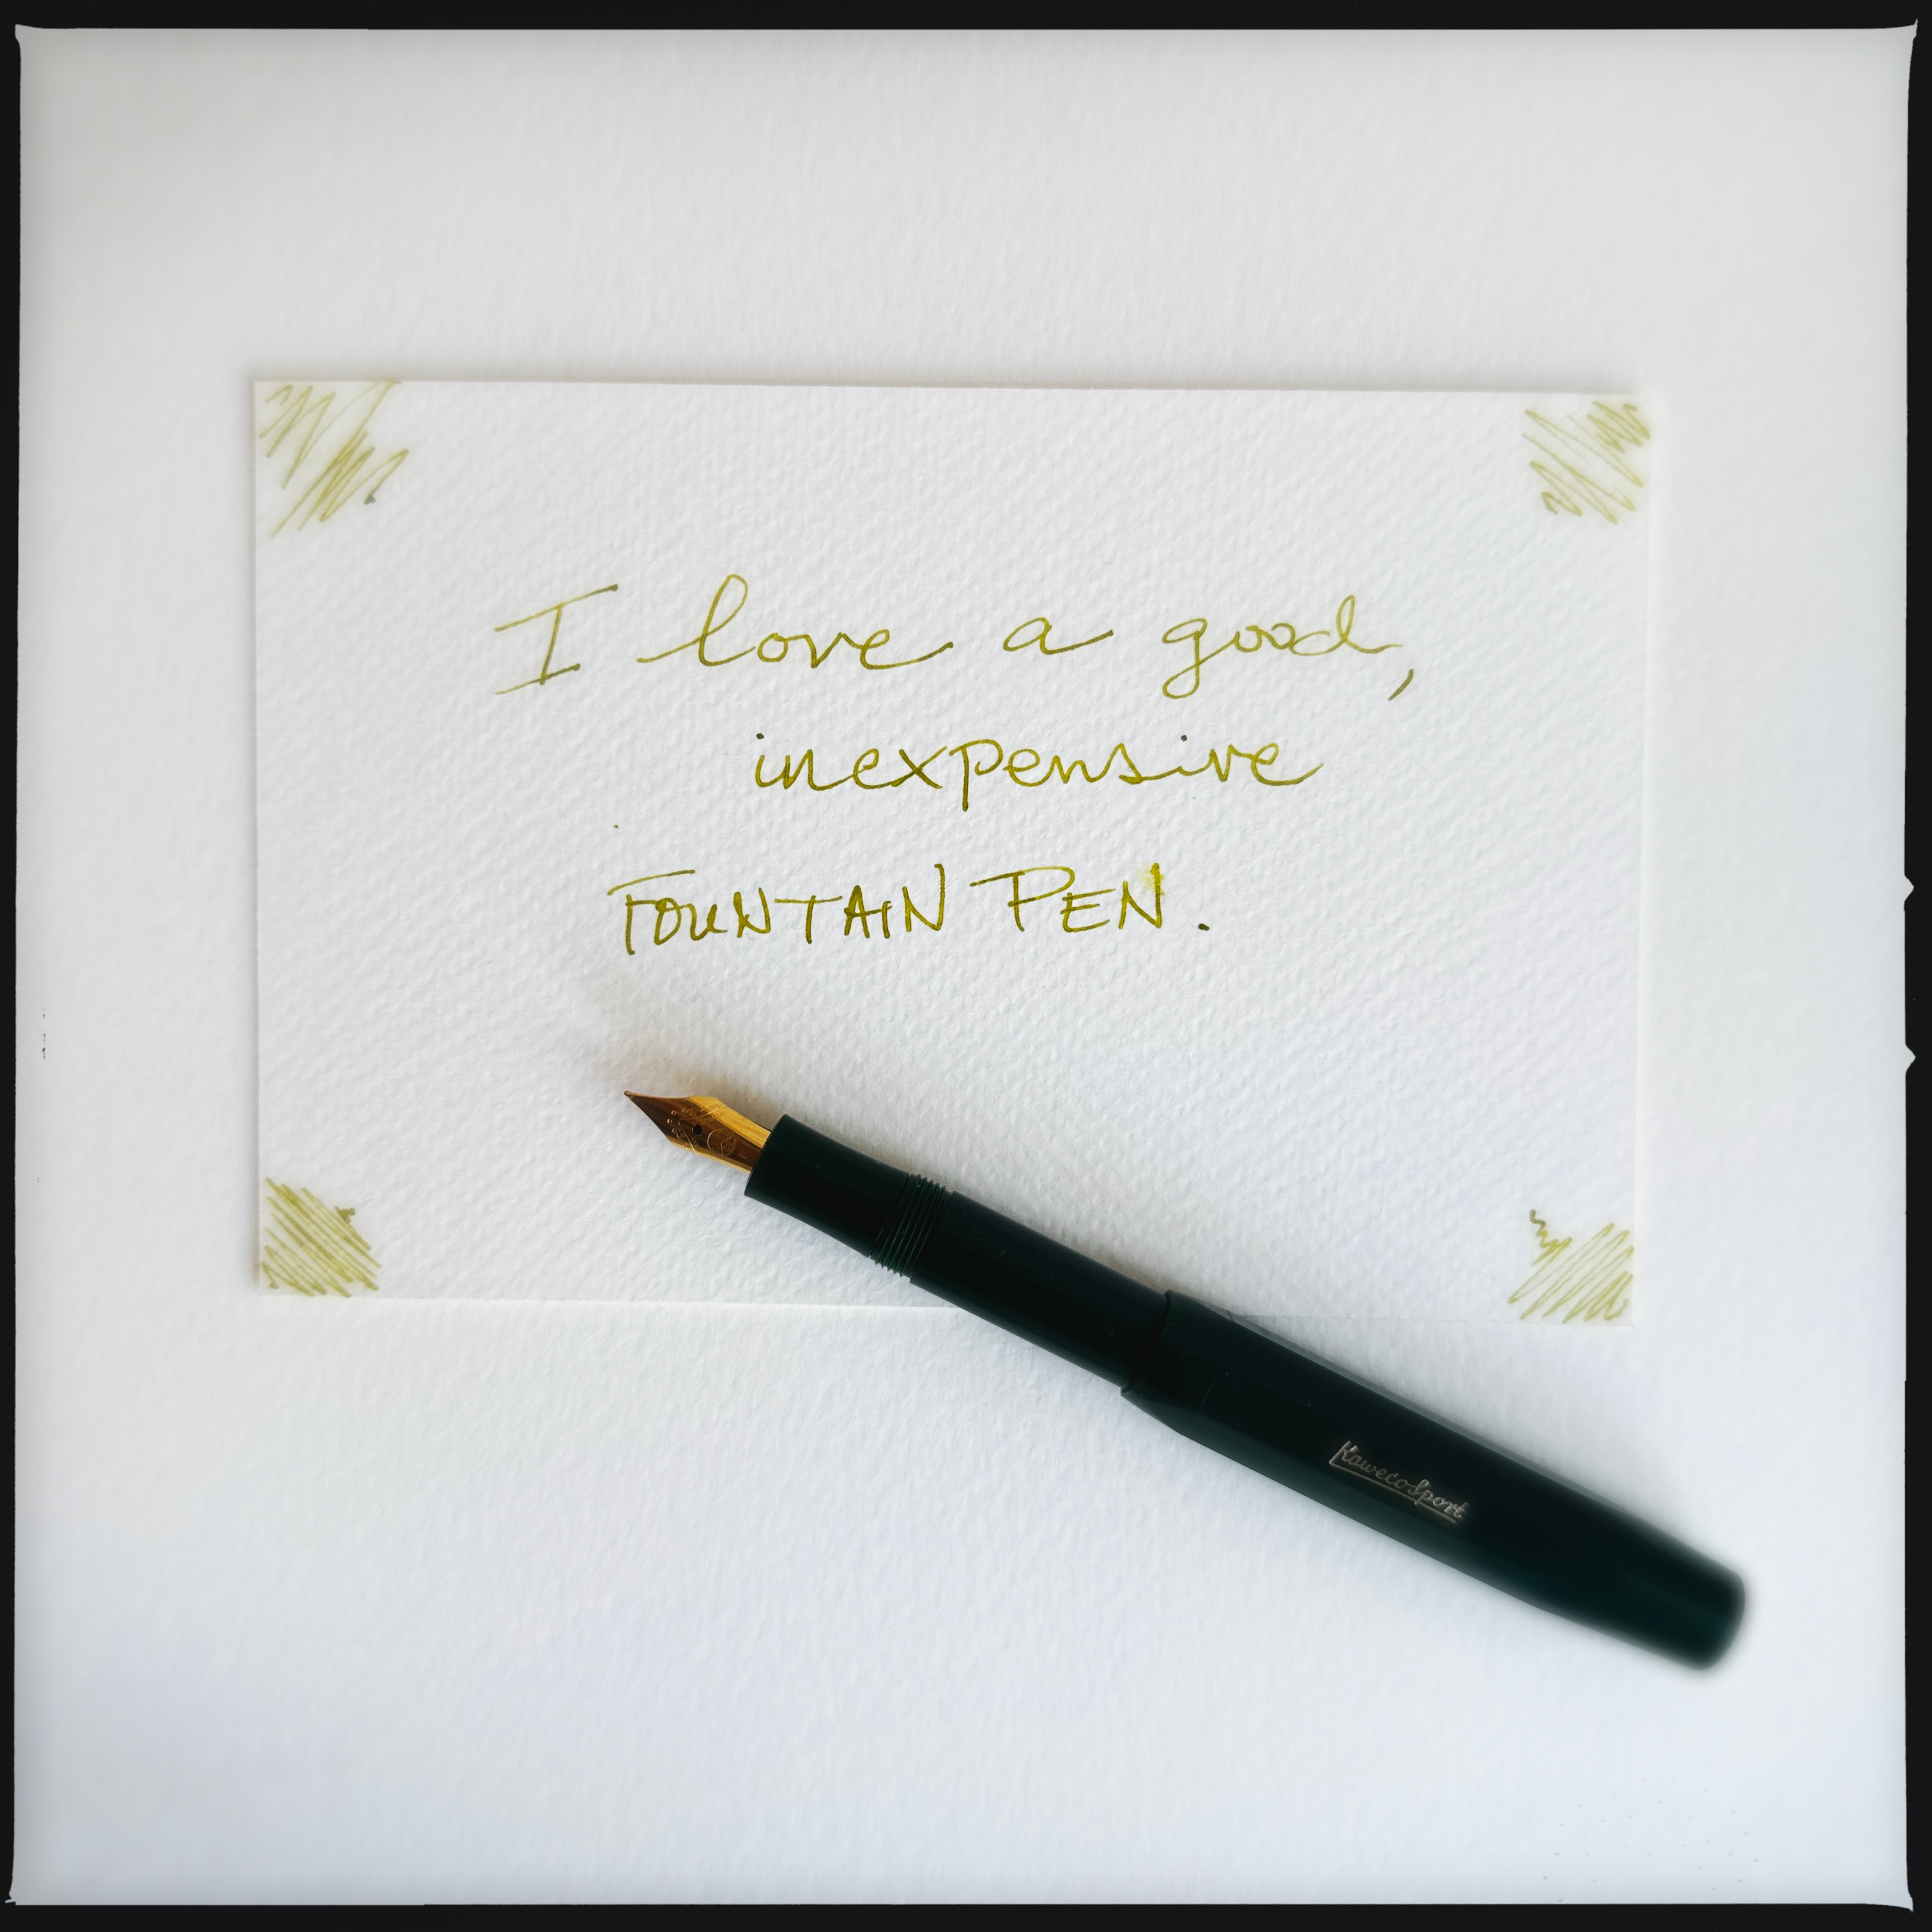 I love a good,
inexpensive
FOUNTAIN PEN.
KawecoSport